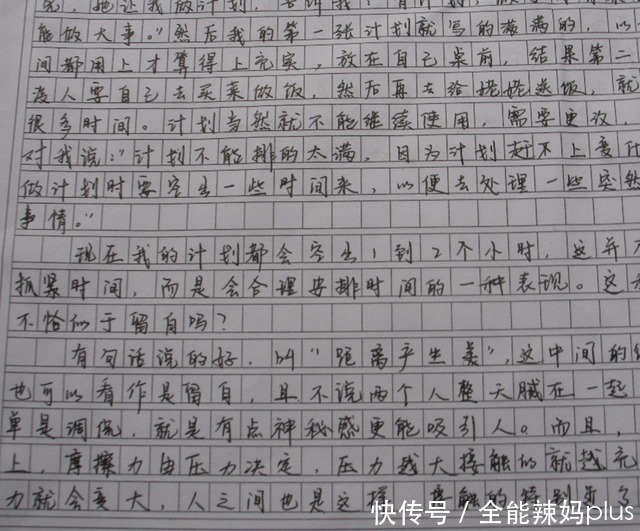 完，她让我做计划，
能做大事。”然后我的第一张计划就写的满满的，以
间都用上才算得上充实，放在自己桌前，结果第二
没人要自己去买菜做饭，然后再去给姥姥送饭，就
很多时间。计划当然就不能继续使用，需要更改，
对我说：“计划不能排的太满，因为计划赶不上变化
做计划时要空出一些时间来，以便去处理一些突然
事情。”
现在我的计划都会空出1到2个小时，这并不
抓紧时间，而是会合理安排时间的一种表现。这
不恰似于留白吗？
有句话说的好，叫“距离产生美”，这中间的
也可以看作是留白，且不说两个人整天腻在一起
单是调侃，就是有点神秘感更能吸引人。而且，
上，摩擦力由压力决定，压力越大接触的就越充
力就会变大，人之间也是这样，接触的特别多了
快传号／全能辣妈plus